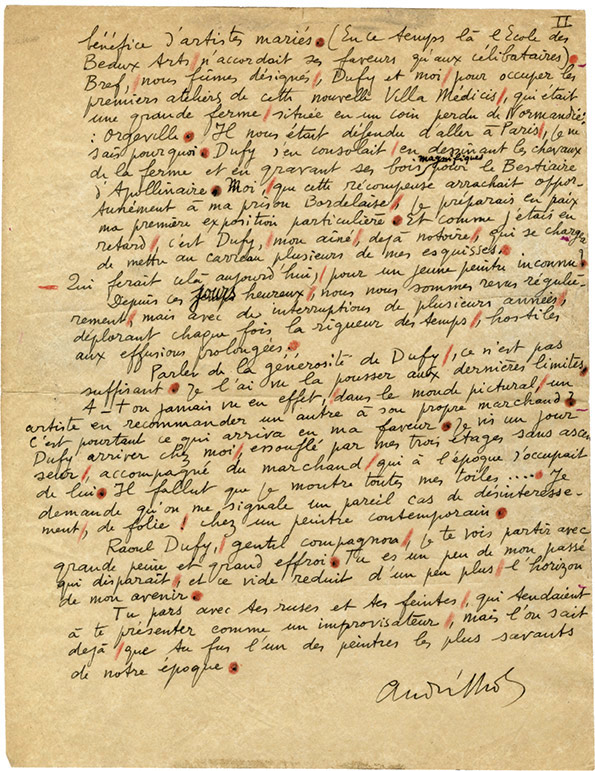 II
bénéfice d'artistes mariés. (En ce temps là l'Ecole des
Beaux Arts n'accordait ses faveurs qu'aux célibataires).
Bref, nous fûmes désignés, Dufy et moi, pour occuper les
premiers ateliers de cette nouvelle Villa Médicis, qui était
une grande ferme, située en un coin perdu de Normandie
: Orgeville. Il nous était défendu d'aller à Paris, je ne
sais pourquoi. Dufy s'en consolait, en dessinant les chevaux
de la ferme et en gravant ses bois magnifiques pour le Bestiaire
d'Apollinaire. Moi, que cette récompense arrachait oppor-
tunément à ma prison Bordelaise, je préparais en paix
ma première exposition particulière. Et comme j'étais en
retard, c'est Dufy, mon aîné, dejà notoire, qui se chargea
de mettre au carreau plusieurs de mes esquisses.
Qui ferait celà aujourd'hui, pour un jeune peintre inconnu?
Depuis ces jours heureux, nous nous sommes revus réguliè-
rement, mais avec de interruptions de plusieurs années,
déplorant chaque fois la rigueur des temps, hostiles
aux effusions prolongées.
Parler de la générosité de Dufy, ce n'est pas
suffisant. Je l'ai vu la pousser aux dernières limites.
A-t on jamais vu en effet, dans le monde pictural, un
artiste en recommander un autre à son propre marchand?
C'est pourtant ce qui arriva en ma faveur. Je vis un jour
Dufy arriver chez moi, essouflé par mes trois étages sans ascen
seur, accompagné du marchand, qui à l'époque s'occupait
de lui. Il fallut que je montre toutes mes toiles.... Je
demande qu'on me signale un pareil cas de désinteresse-
ment, de folie! chez un peintre contemporain.
Raoul Dufy, gentil compagnon, je te vois partir avec
grande peine et grand effroi. Tu es un peu de mon passé
qui disparaît, et ce vide reduit d'un peu plus, l'horizon
de mon avenir.
Tu pars avec tes ruses et tes feintes, qui tendaient
à te présenter comme un improvisateur, mais l'on sait
dejà, que tu fus l'un des peintres les plus savants
de notre époque.
André Lhote